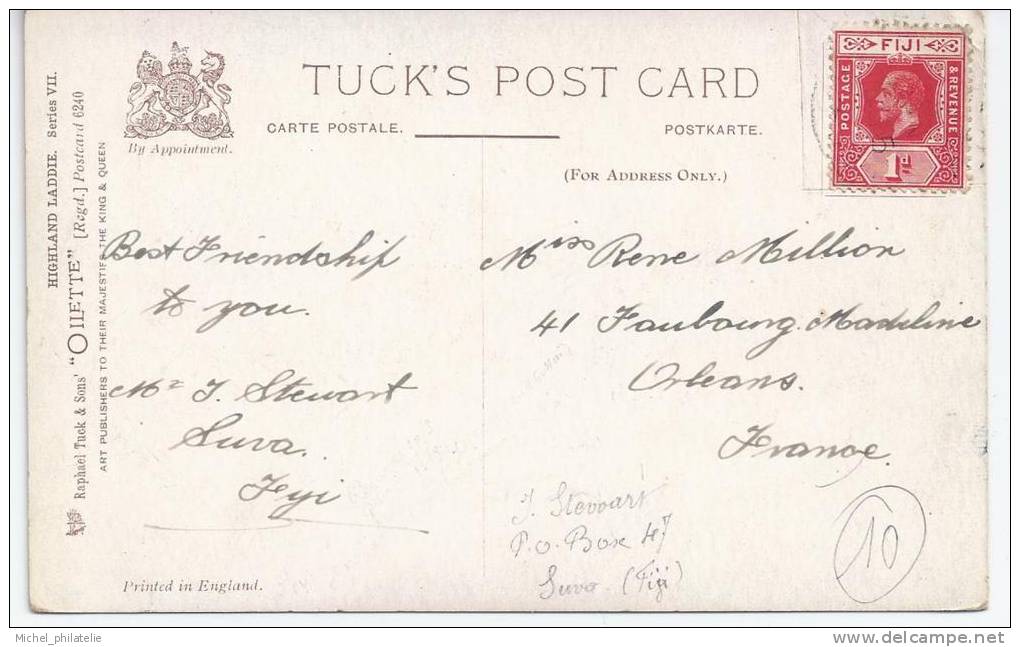 HIGHLAND LADDIE. Series VII.
Raphael Tuck & Sons' "OILETTE" [Regd.] Postcard 6240
ART PUBLISHERS TO THEIR MAJESTIES THE KING & QUEEN
By Appointment.
TUCK'S POST CARD
CARTE POSTALE.
POSTKARTE.
(FOR ADDRESS ONLY.)
FIJI
POSTAGE
& REVENUE
1d
Best Friendship
to you.
Mr J. Stewart
Suva.
Fiji
Miss Rene Million
41 Faubourg. Madeline
Orleans.
France.
J. Stewart
P.O. Box 47
Suva (Fiji)
10
Printed in England.
Michel_philatelie
www.delcampe.net